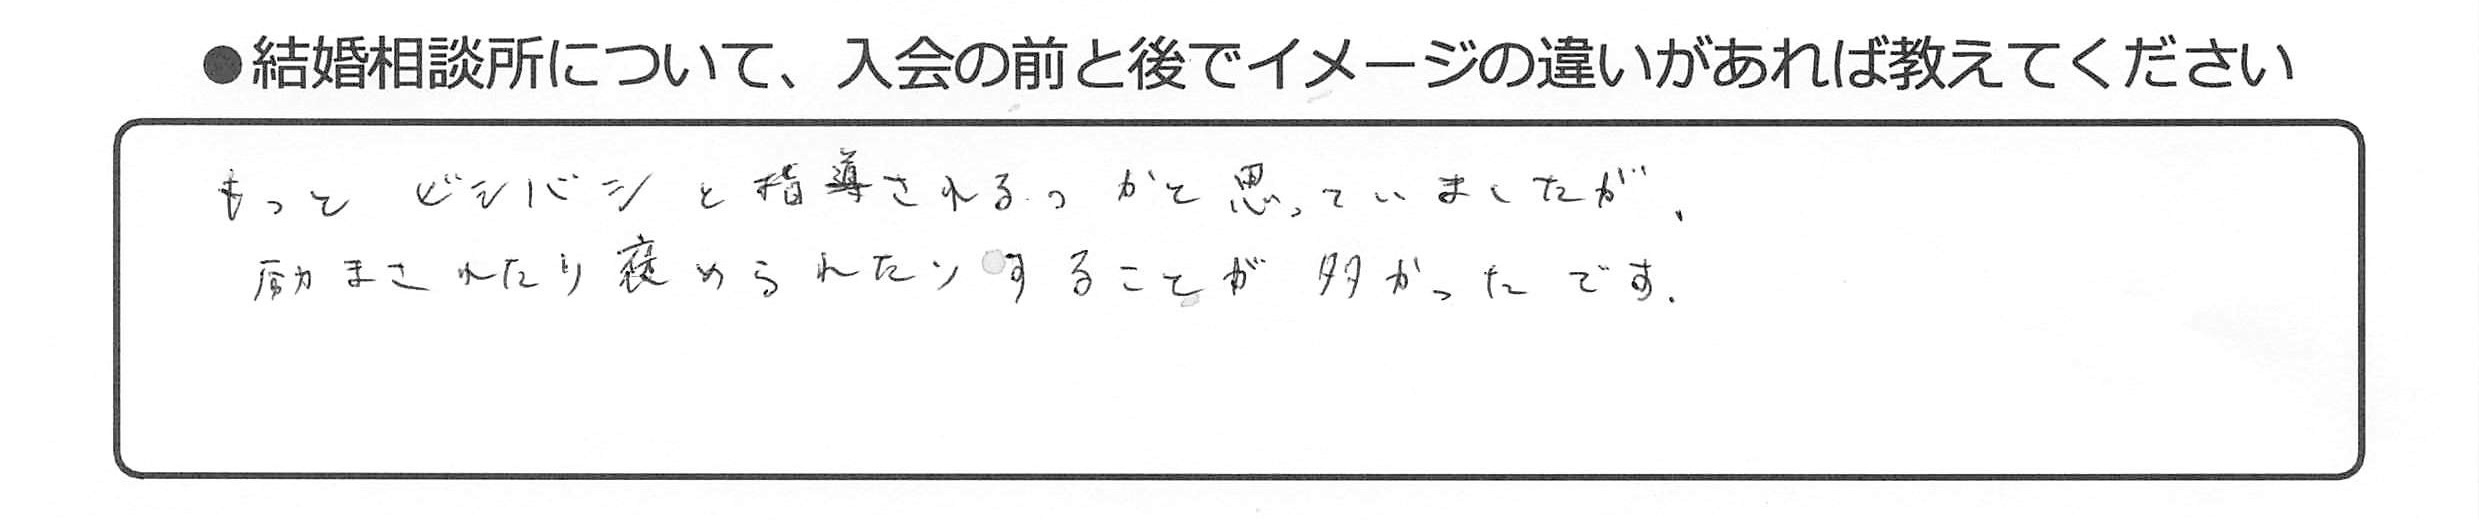 ●結婚相談所について、入会の前と後でイメージの違いがあれば教えてください
もっと ビシバシと指導されるのかと思っていましたが、
励まされたり褒められたりすることが多かったです。